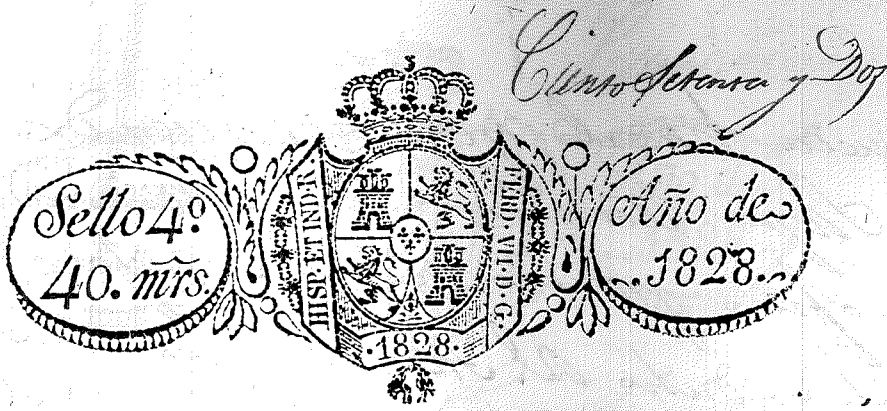 Ciento Setenta y Dos
Sello 4º
40. mr̃s.
HISP. ET IND. R.
FERD. VII. D. G.
·1828·
Año de
1828.